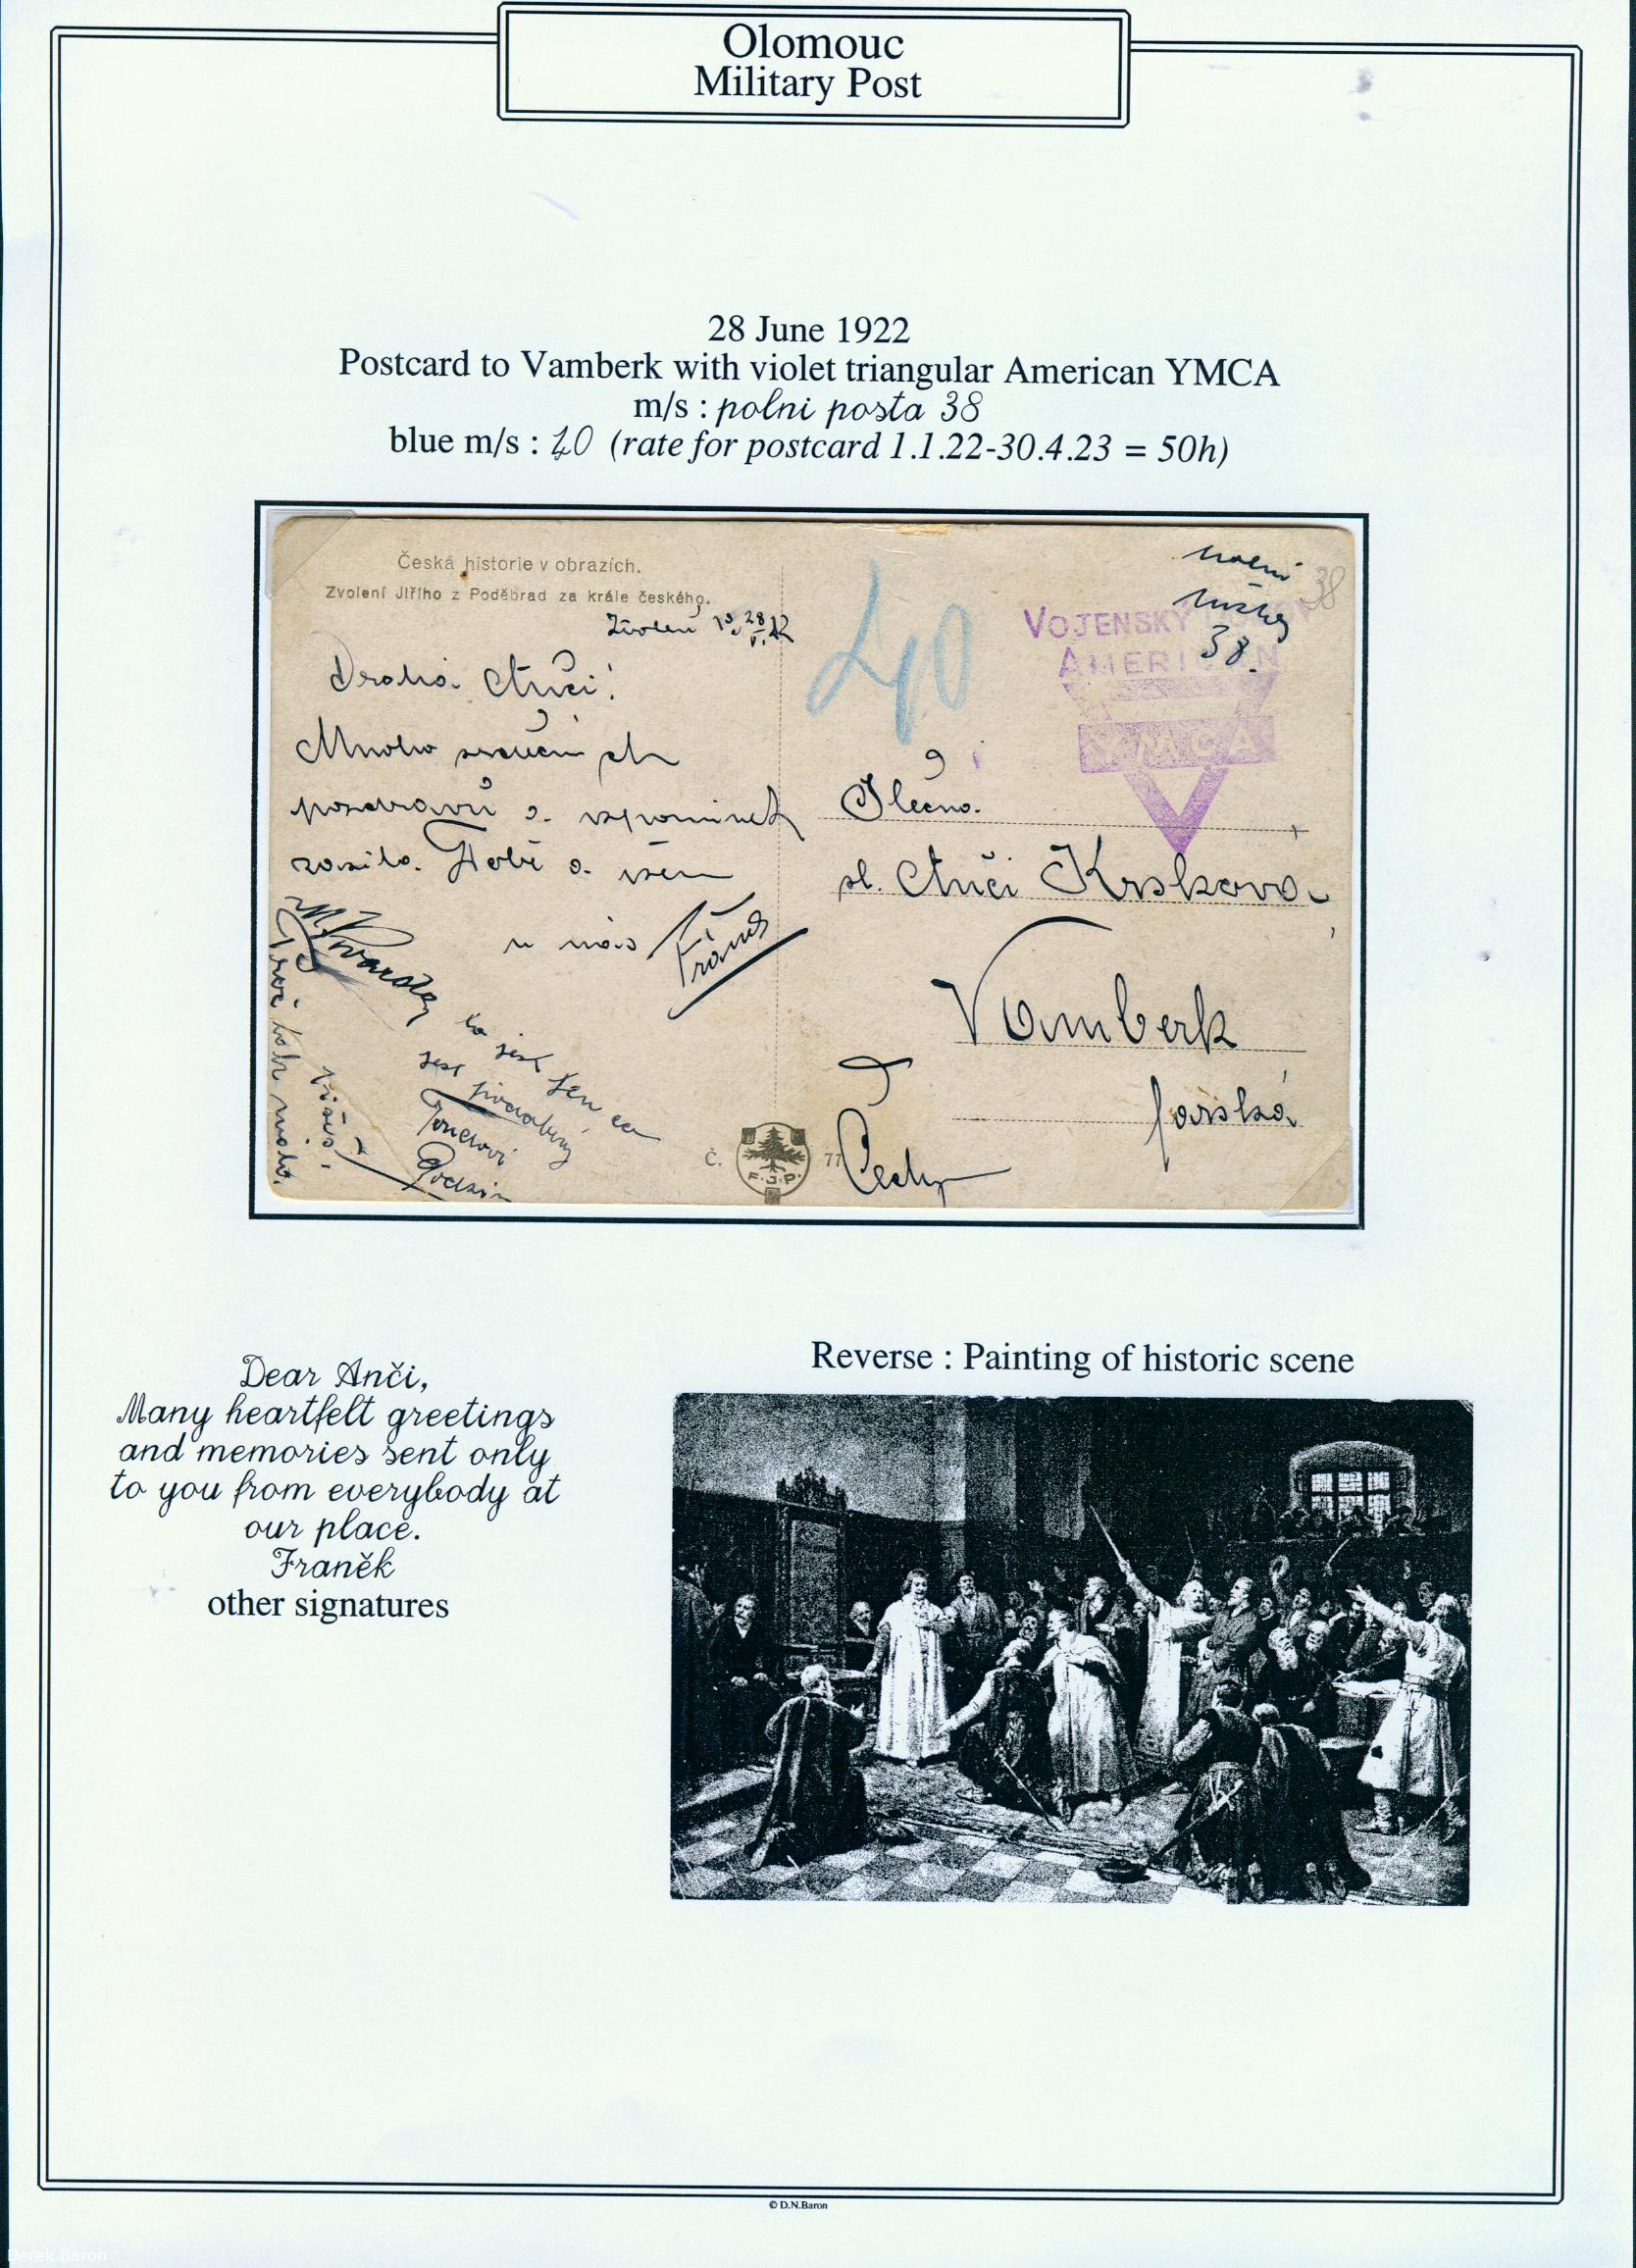 Olomouc
Military Post
28 June 1922
Postcard to Vamberk with violet triangular American YMCA
m/s : polni posta 38
blue m/s : 40 (rate for postcard 1.1.22-30.4.23 = 50h)
Česká historie v obrazích.
Zvolení Jiřího z Poděbrad za krále českého.
28
Drahá Anči!
Mnoho srdečních
pozdravů a vzpomínek
zasílá Tobě a všem
u nás
Franěk
to jest jen
jest
40
38
38.
VOJENSKÝ
AMERICAN
YMCA
Slečna
sl. Anči Krskova
Vamberk
Čechy
Č.
F.J.P.
77
Dear Anči,
Many heartfelt greetings
and memories sent only
to you from everybody at
our place.
Franěk
other signatures
Reverse : Painting of historic scene
© D.N.Baron
Derek Baron